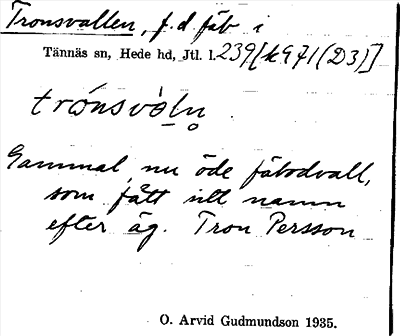 Tronsvallen, f.d. fäb i
Tännäs sn, Hede hd, Jtl. l. 239[k971(D3)]
trónsvàln̥.
Gammal, nu öde fäbodvall,
som fått sitt namn
efter äg. Tron Persson
O. Arvid Gudmundson 1935.